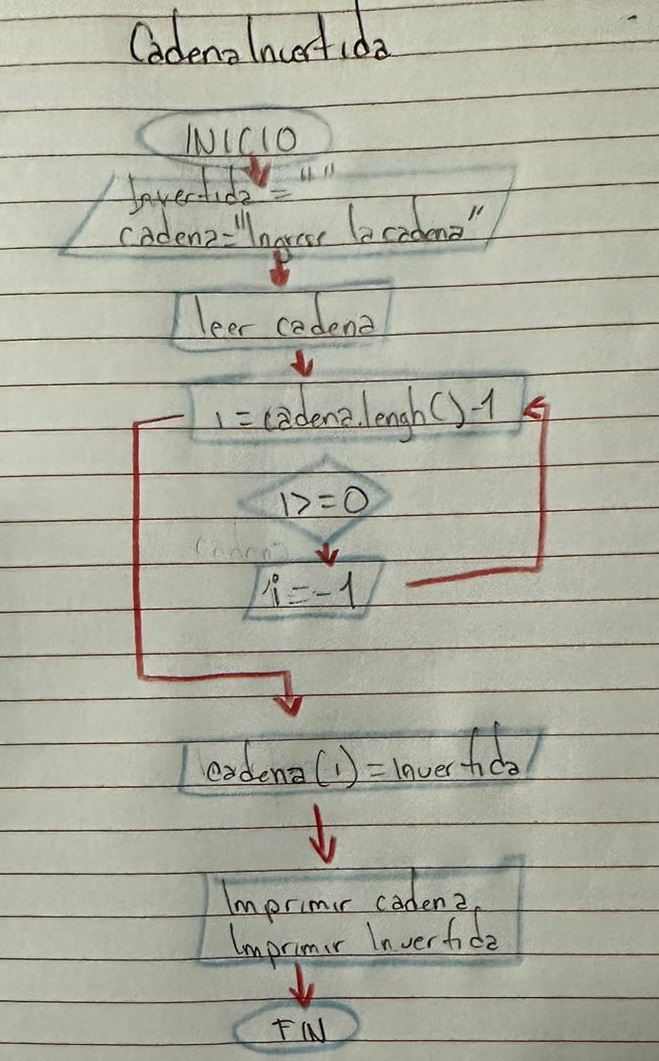 CadenaInvertida
INICIO
Invertida = ""
cadena="Ingrese la cadena"
leer cadena
i = cadena.lengh()-1
i>=0
i=-1
cadena(i)=Invertida
Imprimir cadena,
Imprimir Invertida
FIN